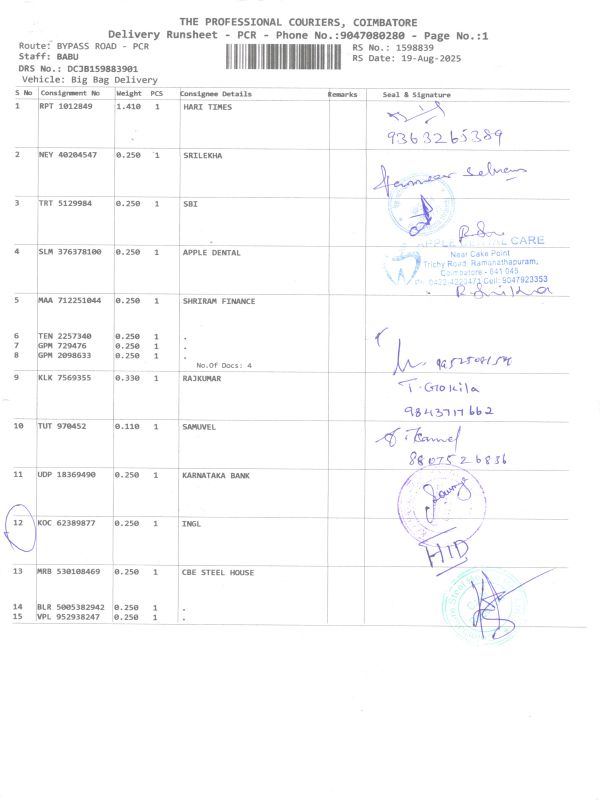 THE PROFESSIONAL COURIERS, COIMBATORE
Delivery Runsheet - PCR - Phone No.:9047080280 - Page No.:1
Route: BYPASS ROAD - PCR
RS No.: 1598839
Staff: BABU
RS Date: 19-Aug-2025
DRS No.: DCJB159883901
Vehicle: Big Bag Delivery
S No Consignment No Weight PCS Consignee Details Remarks Seal & Signature
1 RPT 1012849 1.410 1 HARI TIMES
9363265389
2 NEY 40204547 0.250 1 SRILEKHA
3 TRT 5129984 0.250 1 SBI
APPLE DENTAL CARE
4 SLM 376378100 0.250 1 APPLE DENTAL
Near Cake Point
Trichy Road, Ramanathapuram,
Coimbatore - 641 045
Ph: 0422-4220471 Cell: 9047923353
5 MAA 712251044 0.250 1 SHRIRAM FINANCE
6 TEN 2257340 0.250 1 .
7 GPM 729476 0.250 1 .
8 GPM 2098633 0.250 1 .
No.Of Docs: 4
9 KLK 7569355 0.330 1 RAJKUMAR
T. Gokila
9843717662
10 TUT 970452 0.110 1 SAMUVEL
8807526836
11 UDP 18369490 0.250 1 KARNATAKA BANK
Sowmya
12 KOC 62389877 0.250 1 INGL
HID
13 MRB 530108469 0.250 1 CBE STEEL HOUSE
14 BLR 5005382942 0.250 1 .
15 VPL 952938247 0.250 1 .